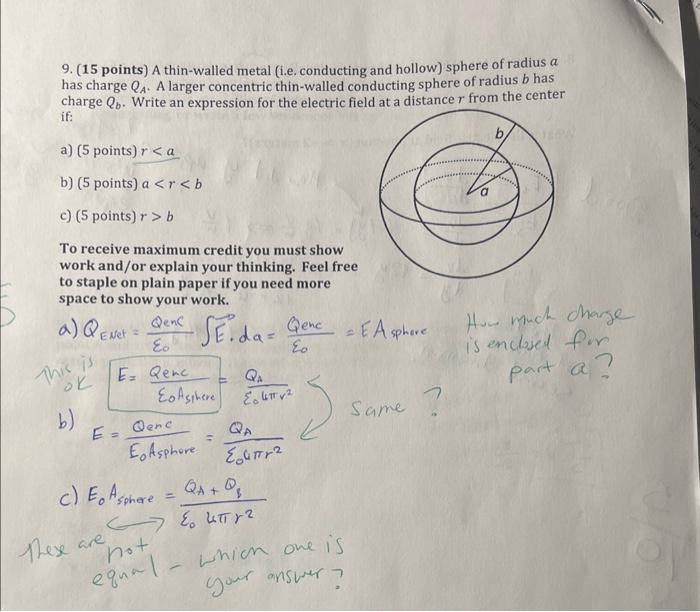 9. (15 points) A thin-walled metal (i.e. conducting and hollow) sphere of radius a
has charge Q_A. A larger concentric thin-walled conducting sphere of radius b has
charge Q_b. Write an expression for the electric field at a distance r from the center
if:
b
a
a) (5 points) r < a
b) (5 points) a < r < b
c) (5 points) r > b
To receive maximum credit you must show
work and/or explain your thinking. Feel free
to staple on plain paper if you need more
space to show your work.
a) Q_ENet = Qenc/ε₀ ∫E⃗·da = Qenc/ε₀ = EA sphere
How much charge
is enclosed for
part a?
This is
ok
E = Qenc/ε₀Asphere = Q_A/ε₀4πr²
same?
b) E = Qenc/ε₀Asphere = Q_A/ε₀4πr²
c) E₀Asphere = Q_A + Q_B/ε₀ 4πr²
These are
not
equal - which one is
your answer?